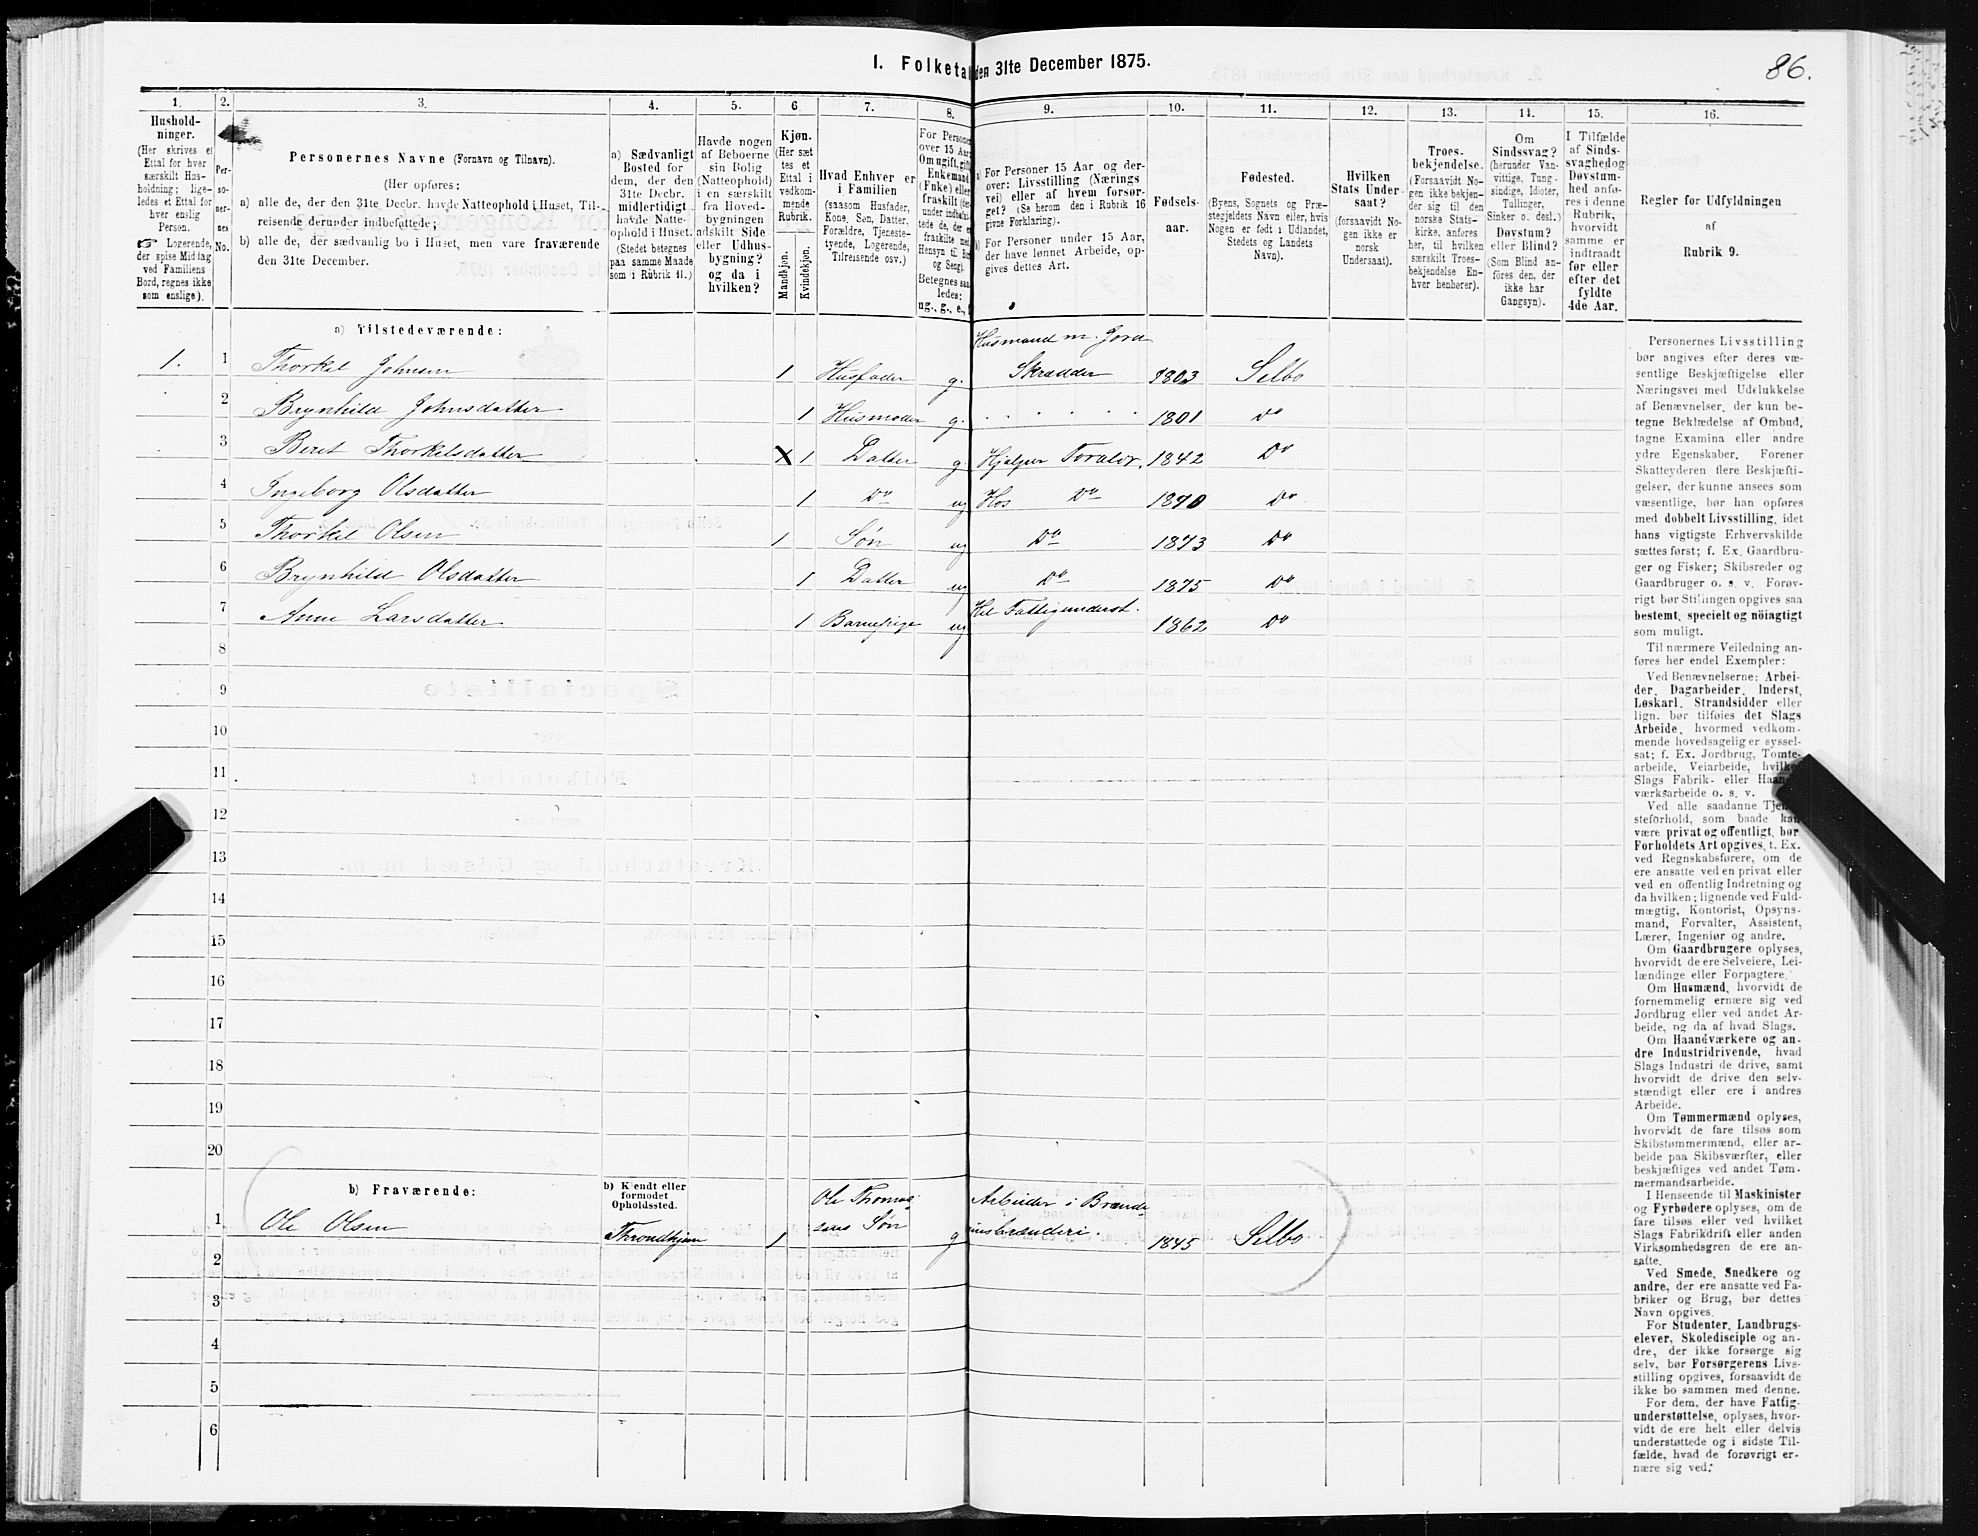 86.
I. Folketal den 31te December 1875.
1. 2. 3. 4. 5. 6 7. 8. 9. 10. 11. 12. 13. 14. 15. 16.
Hushold-
ninger.
(Her skrives et
Ettal for hver
særskilt Hus-
holdning; lige-
ledes et Ettal for
hver enslig
Person.
☞ Logerende,
der spise Middag
ved Familiens
Bord, regnes ikke
som enslige).
Per-
so-
ner-
nes
No.
Personernes Navne (Fornavn og Tilnavn).
(Her opføres:
a) alle de, der den 31te Decbr. havde Natteophold i Huset, Til-
reisende derunder indbefattede;
b) alle de, der sædvanlig bo i Huset, men vare fraværende
den 31te December.
a) Sædvanligt
Bosted for
dem, der den
31te Decbr.
midlertidigt
havde Natte-
ophold i Huset.
(Stedet betegnes
paa samme Maade
som i Rubrik 11.)
Havde nogen
af Beboerne
sin Bolig
(Natteophold)
i en særskilt
fra Hoved-
bygningen
adskilt Side
eller Udhus-
bygning?
og da i
hvilken?
Kjøn.
(Her sæt
tes et
Ettal i
vedkom-
mende
Rubrik.
Mandkjøn.
Kvindekjøn.
Hvad Enhver er
i Familien
(saasom Husfader,
Kone, Søn, Datter,
Forældre, Tjeneste-
tyende, Logerende,
Tilreisende osv.)
For Personer
over 15 Aar:
Om ugift, gift
Enkemand
(Enke) eller
fraskilt
Betegnes saa-
ledes:
ug., g., e.,
a) For Personer 15 Aar og der-
over: Livsstilling (Nærings
vei) eller af hvem forsør-
get? (Se herom den i Rubrik 16
givne Forklaring).
b) For Personer under 15 Aar,
der have lønnet Arbeide, op-
gives dettes Art.
Fødsels-
aar.
Fødested.
(Byens, Sognets og Præ-
stegjeldets Navn eller, hvis
Nogen er født i Udlandet,
Stedets og Landets
Navn).
Hvilken
Stats Under-
saat?
(forsaavidt No-
gen ikke er
norsk
Undersaat).
Troes-
bekjendelse.
(Forsaavidt No-
gen ikke bekjen-
der sig til den
norske Stats-
kirke, anføres
her, til hvilken
særskilt Troes-
bekjendelse En-
hver henhører).
Om
Sindssvag?
(herunder Van-
vittige, Tung-
sindige, Idioter,
Tullinger,
Sinker o. desl.)
Døvstum?
eller Blind?
(Som Blind an-
føres den, der
ikke har
Gangsyn).
I Tilfælde
af Sinds-
svaghed og
Døvstum-
hed anfø-
res i denne
Rubrik,
hvorvidt
samme er
indtraadt
før eller
efter det
fyldte
4de Aar.
Regler for Udfyldningen
af
Rubrik 9.
a) Tilstedeværende:
Husmand m. Jord
1. 1 Thorkel Johnsen 1 Husfader g. Skrædder 1803 Selbo
2 Brynhild Johnsdatter 1 Husmoder g. 1801 Do
3 Beret Thorkelsdatter X 1 Datter g. Hjelper Foreldr. 1842 Do
4 Ingeborg Olsdatter 1 Do ug Hos Do 1870 Do
5 Thorkel Olsen 1 Søn ug Do 1873 Do
6 Brynhild Olsdatter 1 Datter ug Do 1875 Do
7 Anne Larsdatter 1 Barnepige ug Hel Fattigunderst. 1862 Do
8
9
10
11
12
13
14
15
16
17
18
19
20
b) Fraværende:
b) Kjendt eller
formodet
Opholdssted.
1. Ole Olsen Throndhjem 1 Ole Thomas
sens Søn g Arbeider i Brænde-
vinsbrænderi. 1845 Selbo
2
3
4
5
6
Personernes Livsstilling
bør angives efter deres væ-
sentlige Beskjæftigelse eller
Næringsvei med Udelukkelse
af Benævnelser, der kun be-
tegne Beklædelse af Ombud,
tagne Examina eller andre
ydre Egenskaber. Forener
Skatteyderen flere Beskjæfti-
gelser, der kunne ansees som
væsentlige, bør han opføres
med dobbelt Livsstilling, idet
hans vigtigste Erhvervskilde
sættes først; f. Ex. Gaardbru-
ger og Fisker; Skibsreder og
Gaardbruger o. s. v. Forøv-
rigt bør Stillingen opgives saa
bestemt, specielt og nöiagtigt
som muligt.
Til nærmere Veiledning an-
føres her endel Exempler:
Ved Benævnelserne: Arbei-
der, Dagarbeider, Inderst,
Løskarl, Strandsidder eller
lign. bør tilføies det Slags
Arbeide, hvormed vedkom-
mende hovedsagelig er syssel-
sat; f. Ex. Jordbrug, Tomte-
arbeide, Veiarbeide, hvilket
Slags Fabrik- eller Haand-
værksarbeide o. s. v.
Ved alle saadanne Tjene-
steforhold, som baade kan
være privat og offentligt, bør
Forholdets Art opgives, t. Ex.
ved Regnskabsførere, om de
ere ansatte ved en privat eller
ved en offentlig Indretning og
da hvilken; lignende ved Fuld-
mægtig, Kontorist, Opsyns-
mand, Forvalter, Assistent,
Lærer, Ingeniør og andre.
Om Gaardbrugere oplyses,
hvorvidt de ere Selveiere, Lei-
lændinge eller Forpagtere.
Om Husmænd, hvorvidt de
fornemmelig ernære sig ved
Jordbrug eller ved andet Ar-
beide, og da af hvad Slags.
Om Haandværkere og an-
dre Industridrivende, hvad
Slags Industri de drive, samt
hvorvidt de drive den selv-
stændigt eller ere i andres
Arbeide.
Om Tømmermænd oplyses,
hvorvidt de fare tilsøs som
Skibstømmermænd, eller ar-
beide paa Skibsværfter, eller
beskjæftiges ved andet Tøm-
mermandsarbeide.
I Henseende til Maskinister
og Fyrbødere oplyses, om de
fare tilsøs eller ved hvilket
Slags Fabrikdrift eller anden
Virksomhedsgren de ere an-
satte.
Ved Smede, Snedkere og
andre, der ere ansatte ved Fa-
briker og Brug, bør dettes
Navn opgives.
For Studenter, Landbrugs-
elever, Skoledisciple og an-
dre, der ikke forsørge sig
selv, bør Forsørgerens Livs-
stilling opgives, forsaavidt de
ikke bo sammen med denne.
For dem, der have Fattig-
understøttelse, oplyses, hvor-
vidt de ere helt eller delvis
understøttede og i sidste Til-
fælde, hvad de forøvrigt er-
nære sig ved.